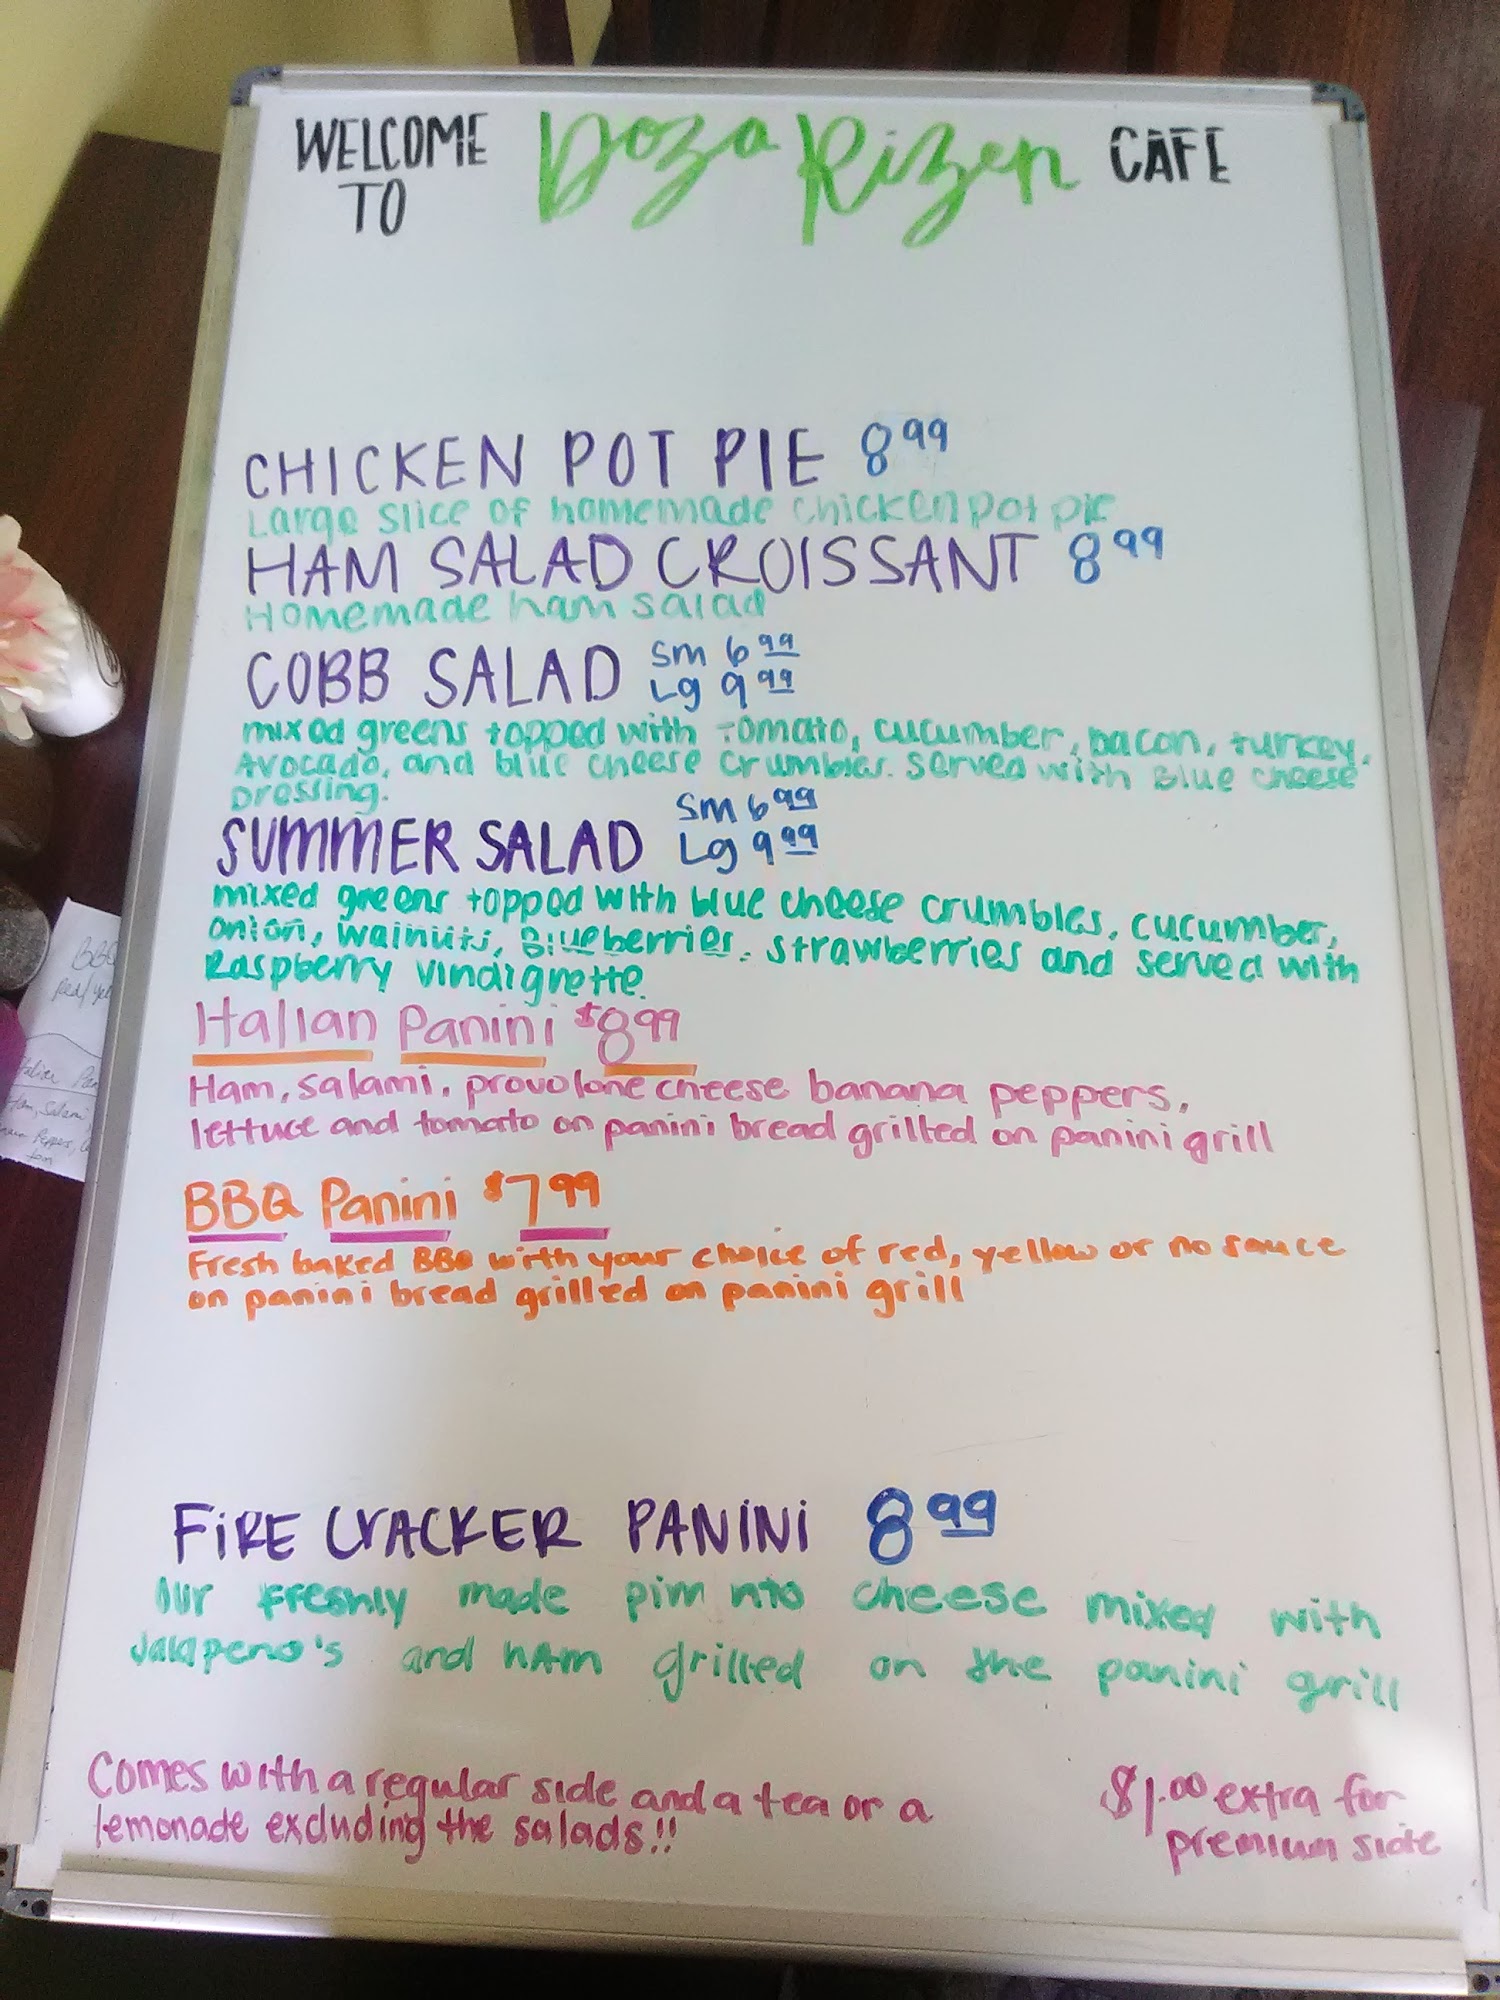 WELCOME TO Doza Rizen CAFE
CHICKEN POT PIE 8 99
Large slice of homemade chicken pot pie
HAM SALAD CROISSANT 8 99
Homemade ham salad
COBB SALAD Sm 6 99
Lg 9 99
mixed greens topped with tomato, cucumber, bacon, turkey,
Avocado, and blue cheese crumbles. served with Blue cheese
Dressing.
SUMMER SALAD Sm 6 99
Lg 9 99
mixed greens topped with blue cheese crumbles, cucumber,
onion, walnuts, Blueberries, strawberries and served with
Raspberry vindigrette.
Italian Panini $8 99
Ham, salami, provolone cheese banana peppers,
lettuce and tomato on panini bread grilled on panini grill
BBQ Panini $7 99
Fresh baked BBQ with your choice of red, yellow or no sauce
on panini bread grilled on panini grill
FIRE CRACKER PANINI 8 99
Our freshly made pimnto cheese mixed with
Jalapeno's and ham grilled on the panini grill
Comes with a regular side and a tea or a
lemonade excluding the salads!!
$1.00 extra for
premium side
BBQ
Ham, Salami